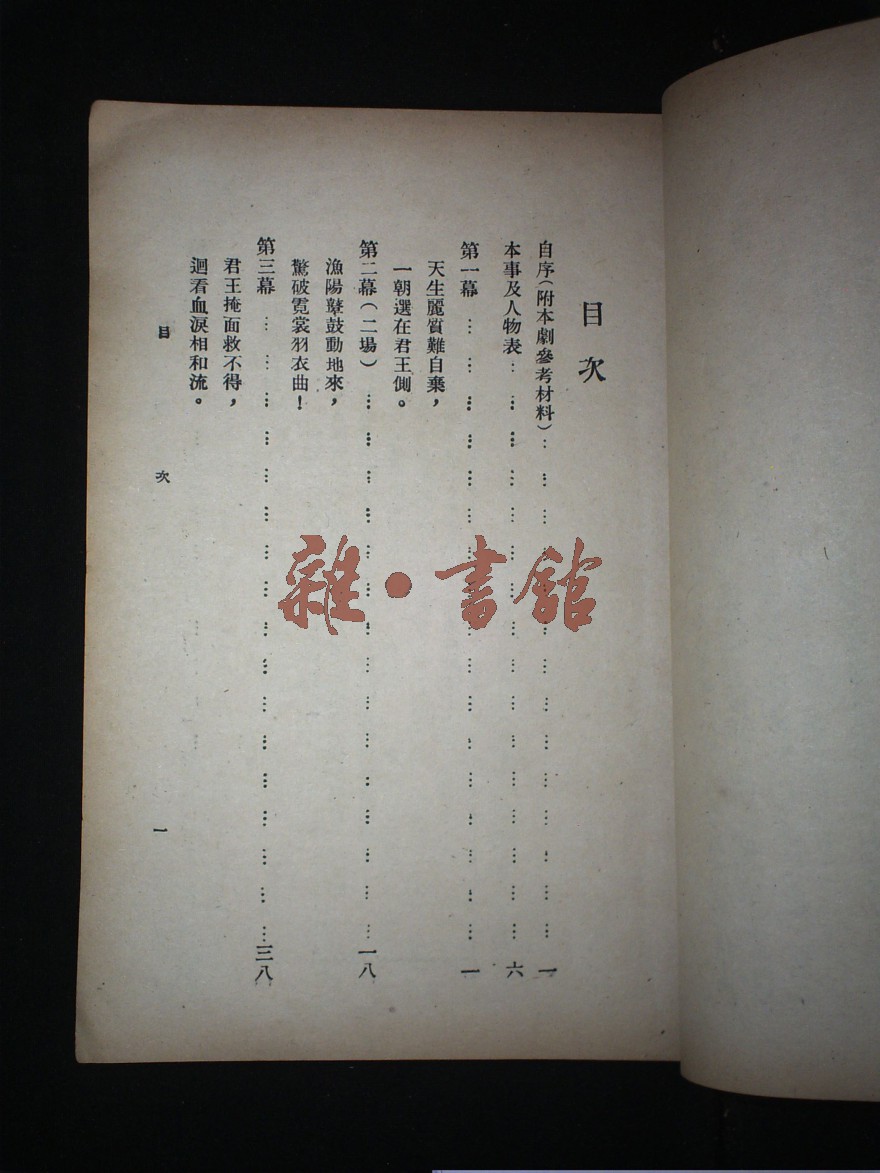 目次
自序(附本劇參考材料)………………一
本事及人物表………………六
第一幕………………一
天生麗質難自棄，
一朝選在君王側。
第二幕(二場)………………一八
漁陽鼙鼓動地來，
驚破霓裳羽衣曲！
第三幕………………三八
君王掩面救不得，
迴看血淚相和流。
目次 一
雜·書館